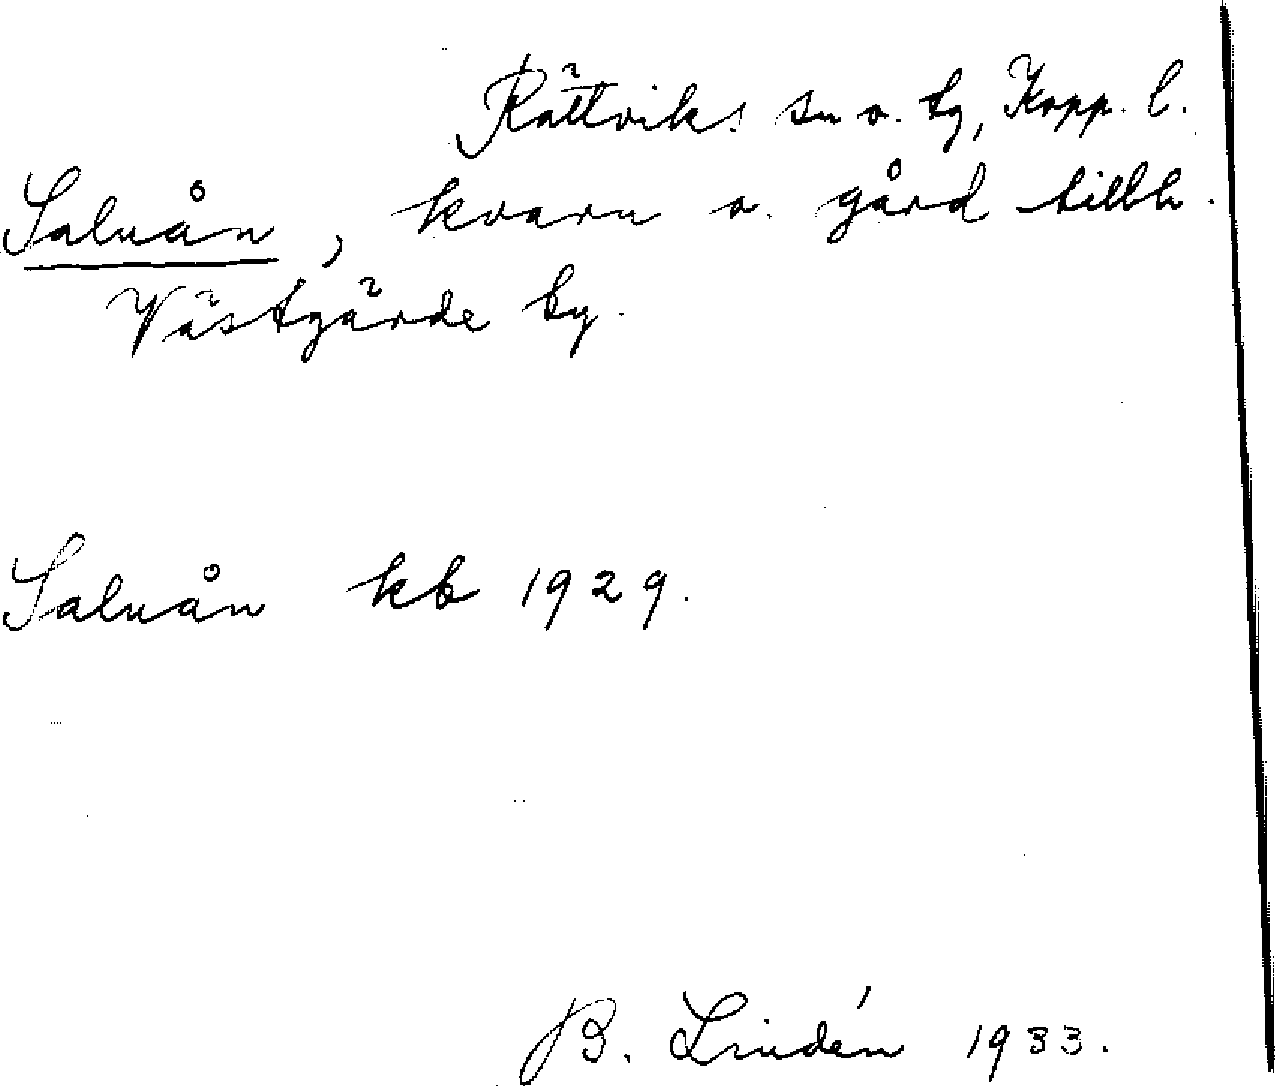 Rättviks sn o. tg, Kopp. l.
Salnån, kvarn o. gård tillh.
Västgärde by.
Salnån kb 1929.
B. Lindén 1933.